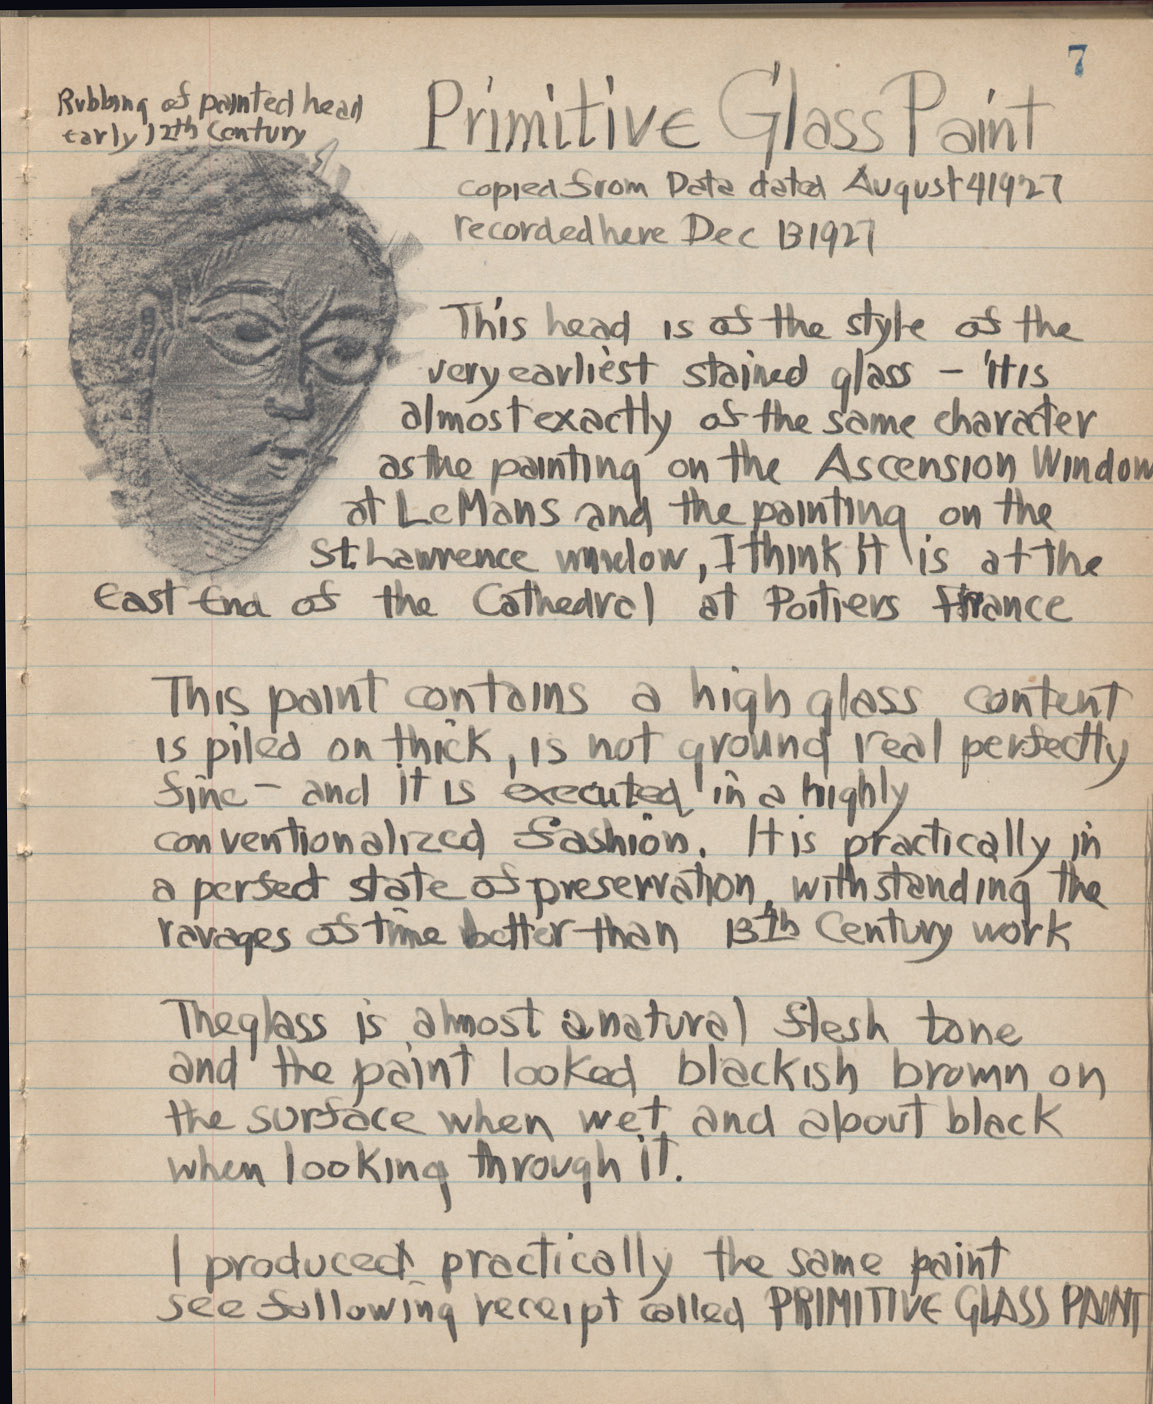 7
Rubbing of painted head
early 12th Century
Primitive Glass Paint
copied from Data dated August 4 1927
recorded here Dec 13 1927
This head is of the style of the
very earliest stained glass – it is
almost exactly of the same character
as the painting on the Ascension Window
at LeMans and the painting on the
St. Lawrence window, I think it is at the
East End of the Cathedral at Poitiers France
This paint contains a high glass content
is piled on thick, is not ground real perfectly
fine – and it is executed in a highly
conventionalized fashion. It is practically in
a perfect state of preservation, withstanding the
ravages of time better than 13th Century work
The glass is almost a natural flesh tone
and the paint looked blackish brown on
the surface when wet and about black
when looking through it.
I produced practically the same paint
see following receipt called PRIMITIVE GLASS PAINT